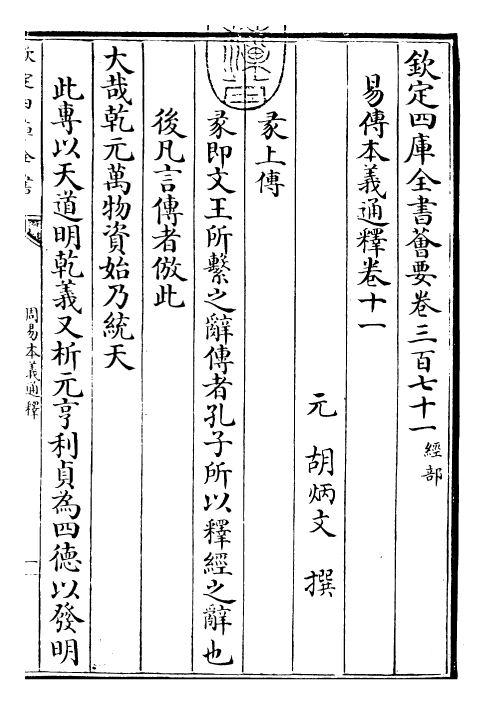 欽定四庫全書薈要卷三百七十一經部
易傳本義通釋卷十一
元胡炳文撰
彖上傳
彖即文王所繫之辭傳者孔子所以釋經之辭也
後凡言傳者倣此
大哉乾元萬物資始乃統天
此專以天道明乾義又析元亨利貞為四德以發明
欽定四庫全書
周易本義通釋